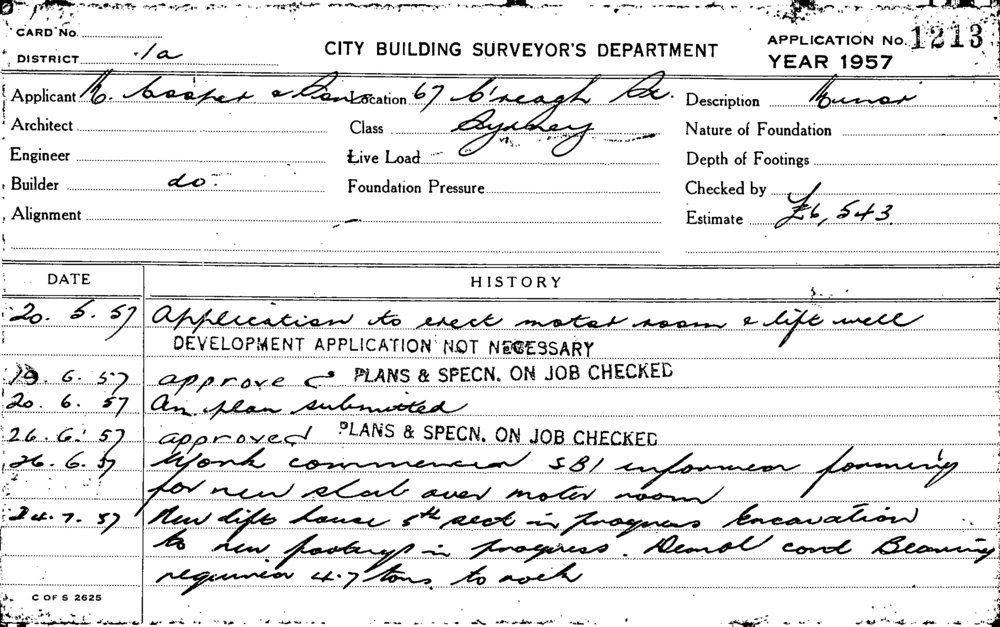 CARD No.
DISTRICT 1a
CITY BUILDING SURVEYOR'S DEPARTMENT
APPLICATION No. 1213
YEAR 1957
Applicant Cooper & Sons Location 67 C'reagh St. Description Minor
Architect Class Sydney Nature of Foundation
Engineer Live Load Depth of Footings
Builder do. Foundation Pressure Checked by
Alignment Estimate £6,543
DATE HISTORY
20. 5. 57 Application to erect motor room & lift well
DEVELOPMENT APPLICATION NOT NECESSARY
19. 6. 57 approved PLANS & SPECN. ON JOB CHECKED
20. 6. 57 An plan submitted
26. 6. 57 approved PLANS & SPECN. ON JOB CHECKED
26. 6. 57 Work commenced SBI informed forming
for new slab over motor room
24. 7. 57 New lift house 5th sect in progress Excavation
to new footings in progress. Demol cont Bearing
required 4.7 tons to rock
C OF S 2625